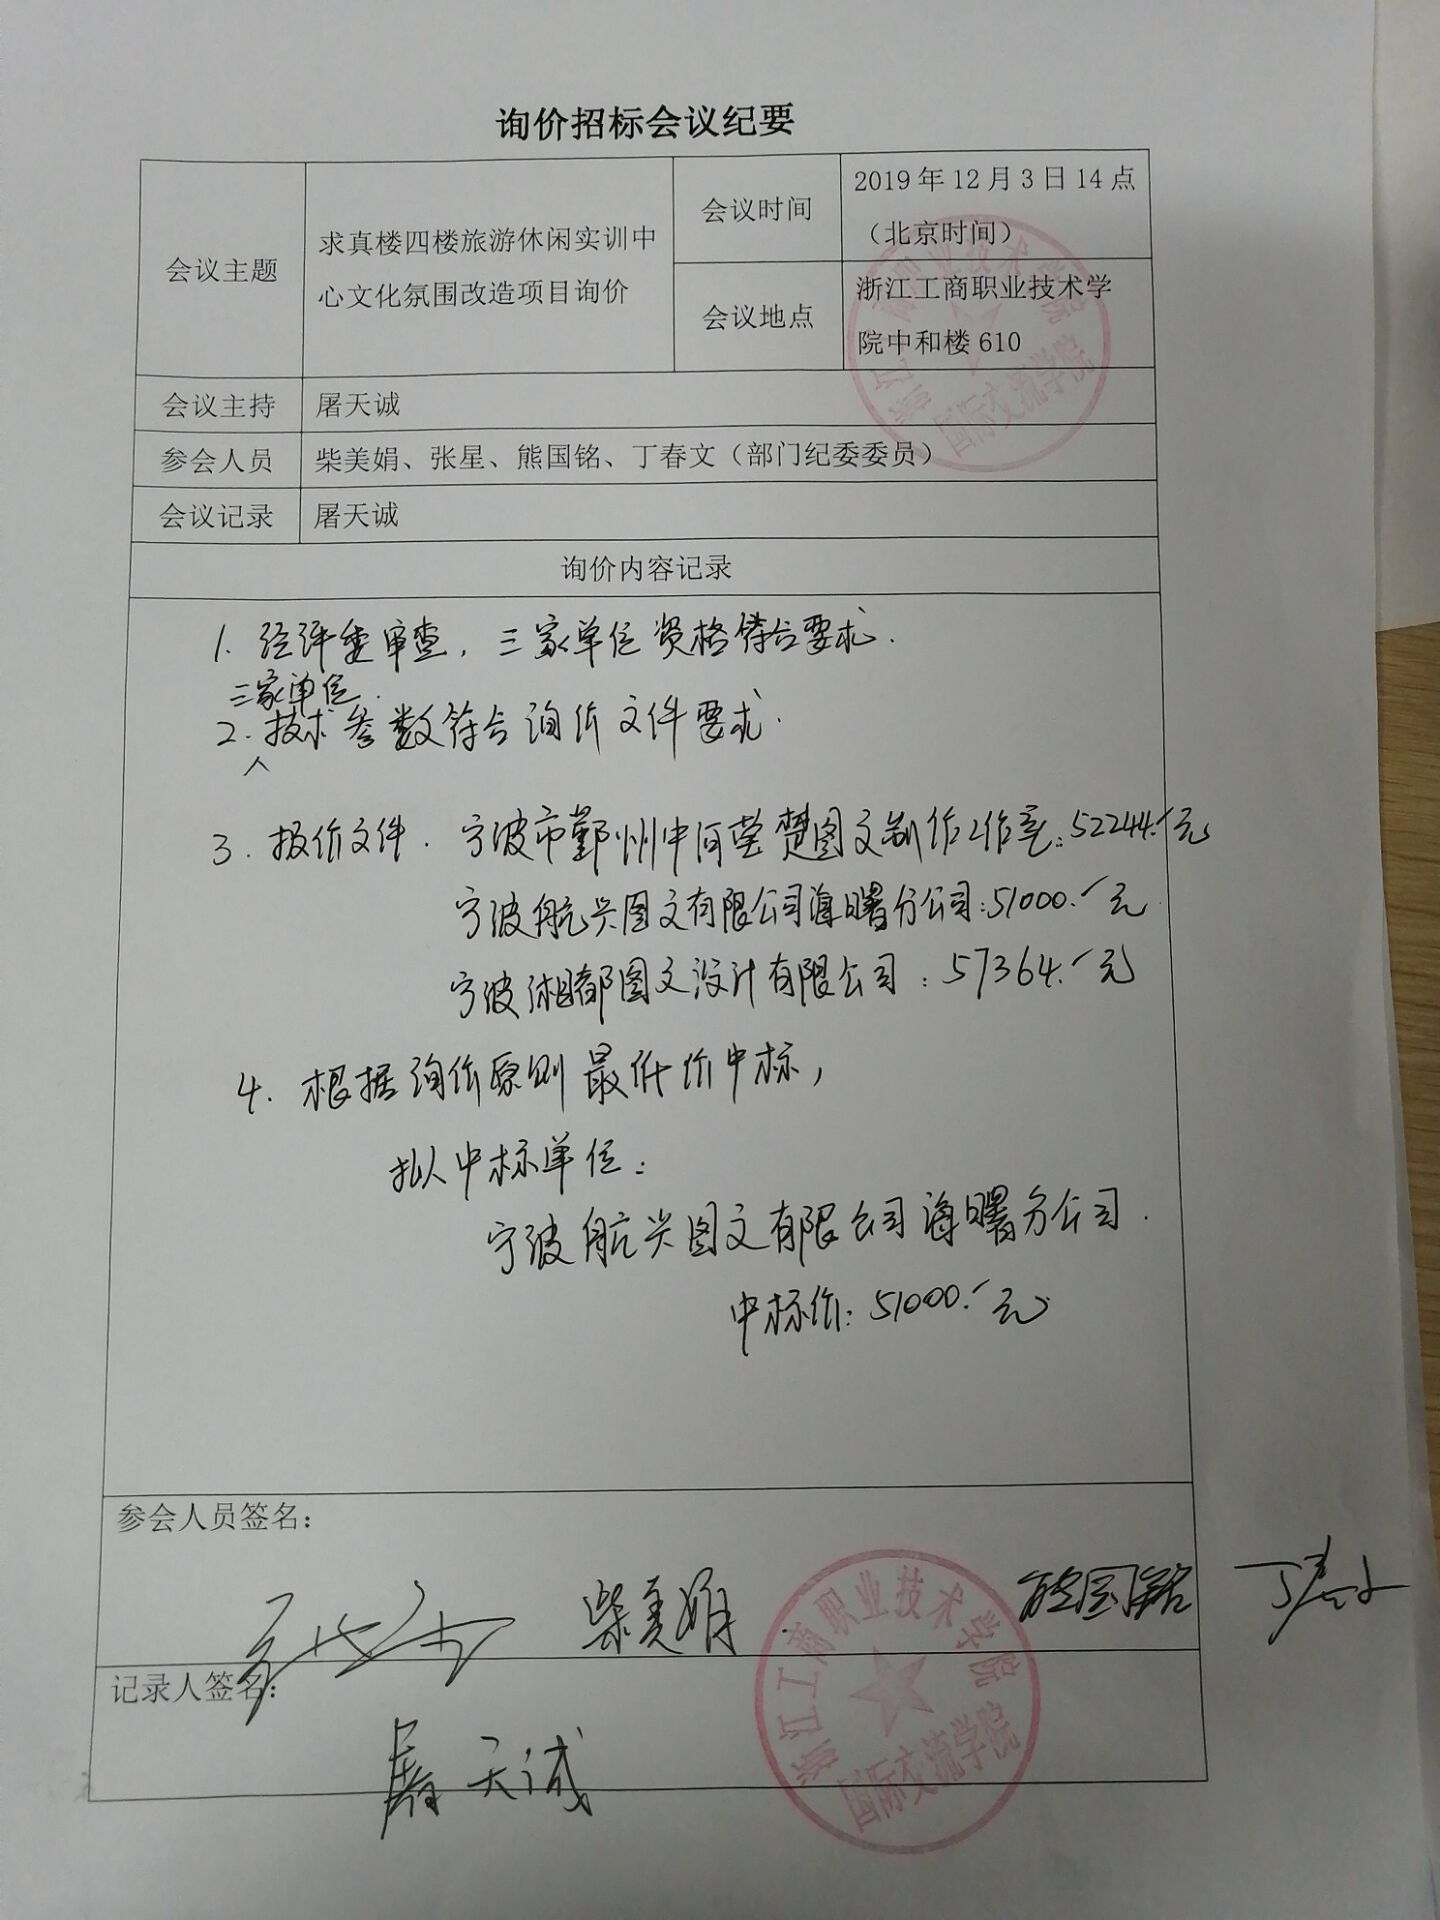 询价招标会议纪要
会议主题
求真楼四楼旅游休闲实训中
心文化氛围改造项目询价
会议时间
2019年12月3日14点
（北京时间）
会议地点
浙江工商职业技术学
院中和楼610
会议主持
屠天诚
参会人员
柴美娟、张星、熊国铭、丁春文（部门纪委委员）
会议记录
屠天诚
询价内容记录
1. 经评委审查，三家单位资格符合要求.
三家单位
2. 技术参数符合询价文件要求.
3. 报价文件. 宁波市鄞州中河莹楚图文制作工作室：52244.-元
宁波航兴图文有限公司海曙分公司：51000.-元
宁波湘都图文设计有限公司：57364.-元
4. 根据询价原则最低价中标，
拟中标单位：
宁波航兴图文有限公司海曙分公司.
中标价：51000.-元
参会人员签名：
柴美娟 熊国铭
记录人签名：
屠天诚
浙江工商职业技术学院
国际交流学院
浙江工商职业技术学院
国际交流学院